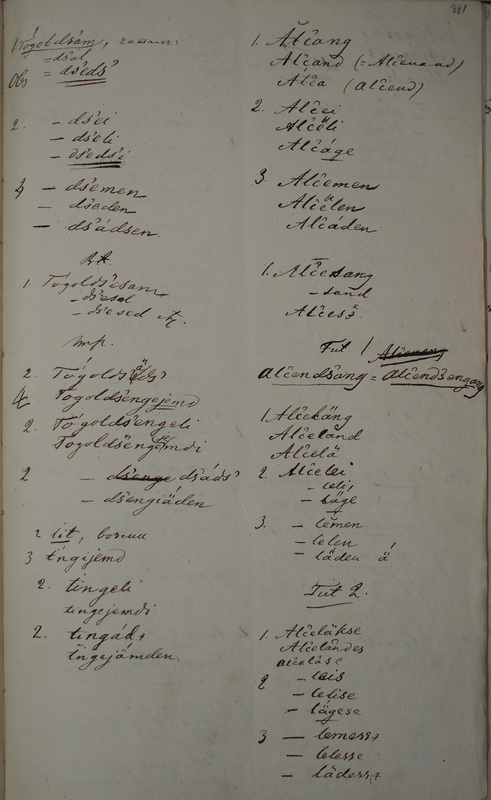 381
1 Togoldšam,
= dšal
Obs = dšeds
2. – dšei
– dšeli
– dšedši
3 – dšemen
– dšeden
– dšádsen
1 Togoldšesam
– dšesal
– dšesed
Imp.
2. Togoldšeds
Togoldšengejemd
2. Togoldšengeli
Togoldšengejemdi
2 – dšenge dšáds
– dšengiäden
2 lit,
3 tingijemd
2. tingeli
tingejemdi
2. tingád
tingejämden
1. Alčang
Alčand (= Alčenand)
Alča (alčend)
2. Alčei
Alčeli
Alčáge
3 Alčemen
Alčelen
Alčáden
1. Alčesang
– sand
Alčes
Fut 1 Alčemeng
alčendsang = alčendsengang
1 Alčeläng
Alčeland
Alčelä
2. Alčelei
– leli
– läge
3. – lemen
– lelen
– läden ä
Fut 2.
1. Alčeläkse
Alčelandes
alčeläse
2 – leis
– lelise
– lägese
3 – lemess
– lelesse
– lädess